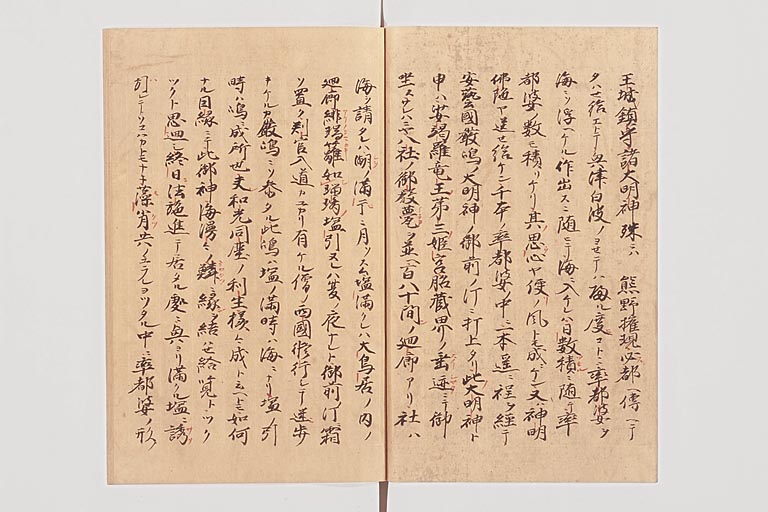 王城鎮守諸大明神殊ニハ 熊野権現必都ヘ傳ヘテ
タハセ給ヘトテ奥津白波ノヨセテハ帰ル度コトニ率都婆ヲ
海ニソ浮ヘケル作出スニ随テ海ニ入ケレハ日数積ニ随テ率
都婆ノ数モ積リケリ其思心ヤ便ノ風トモ成ケン又神明
佛陀ヤ送セ給ケン千本ノ率都婆ノ中ニ一本遥ノ程ヲ経テ
安藝國厳嶋大明神ノ御前ノ汀ニ打上タリ此大明神ト
申ハ娑竭羅竜王第三姫宮胎蔵界ノ垂迹ニ御
坐ス 八社ノ御殿甍ヲ並百八十間ノ廻廊アリ社ハ
海ヲ請タレハ潮ノ満 月ソスム塩満クレハ大鳥居ノ内ノ
廻廊緋玉籬如瑠璃塩引又レハ夏ノ夜ナレト御前ノ汀ニ霜
ソ置ク判官入道カユカリ有ケル僧ノ西國修行シテ迷歩
キケルカ厳嶋ニソ参タル此嶋ハ塩ノ満時ハ海ニナリ塩ノ引
時ハ嶋ト成所也夫和光同塵ノ利生様々成ト云ヘトモ如何
ナル因縁ニテ此御神海漫々ノ鱗ニ縁ヲ結ハセ給覧ト
ツクト思廻シ終日法施進テ居タル處ニ奥ヨリ満クル塩ニ誘
引レテ 藻屑共ノ ヨツタル中ニ率都婆ノ形